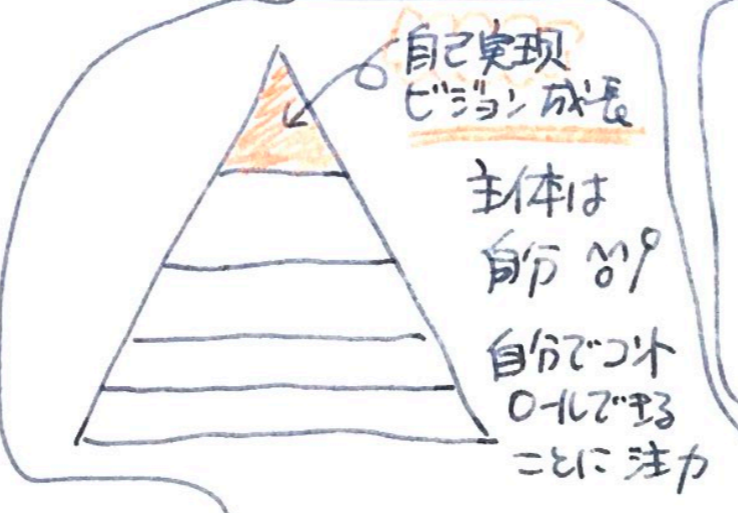 自己実現
ビジョン 成長
主体は
自分
自分でコント
ロールできる
ことに 注力